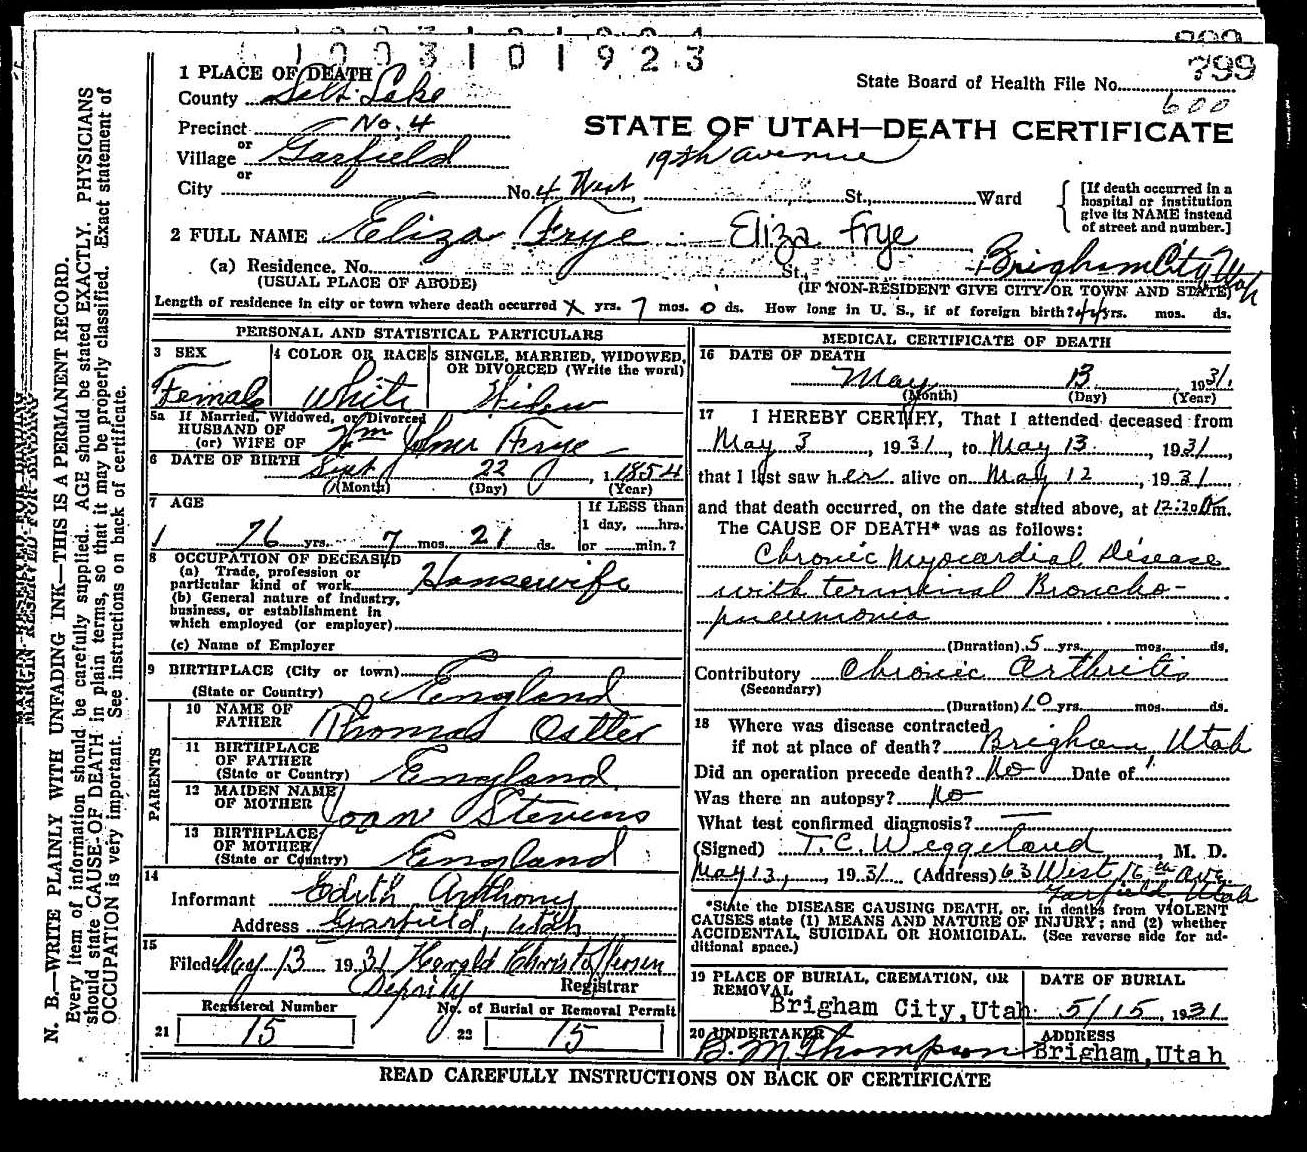 1003101923
799
1 PLACE OF DEATH
State Board of Health File No.
600
County Salt Lake
Precinct No. 4
or
STATE OF UTAH—DEATH CERTIFICATE
Village Garfield
19th Avenue
or
City No. 4 West, St., Ward
[If death occurred in a hospital or institution give its NAME instead of street and number.]
2 FULL NAME Eliza Frye Eliza Frye
(a) Residence. No. St., Brigham City, Utah
(USUAL PLACE OF ABODE) (IF NON-RESIDENT GIVE CITY OR TOWN AND STATE)
Length of residence in city or town where death occurred X yrs. 7 mos. 0 ds. How long in U. S., if of foreign birth? yrs. mos. ds.
PERSONAL AND STATISTICAL PARTICULARS
3 SEX 4 COLOR OR RACE 5 SINGLE, MARRIED, WIDOWED, OR DIVORCED (Write the word)
Female White Widow
5a If Married, Widowed, or Divorced
HUSBAND OF
(or) WIFE OF Wm John Frye
6 DATE OF BIRTH Sept 22, 1854
(Month) (Day) (Year)
7 AGE If LESS than
1 day, hrs.
76 yrs. 7 mos. 21 ds. or min.?
8 OCCUPATION OF DECEASED
(a) Trade, profession or
particular kind of work Housewife
(b) General nature of industry,
business, or establishment in
which employed (or employer)
(c) Name of Employer
9 BIRTHPLACE (City or town)
(State or Country) England
PARENTS
10 NAME OF FATHER Thomas Ostler
11 BIRTHPLACE OF FATHER
(State or Country) England
12 MAIDEN NAME OF MOTHER Joan Stevens
13 BIRTHPLACE OF MOTHER
(State or Country) England
14
Informant Edith Anthony
Address Garfield, Utah
15
Filed May 13 1931 Harold Christoffersen
Deputy Registrar
Registered Number No. of Burial or Removal Permit
21 15 22 15
MEDICAL CERTIFICATE OF DEATH
16 DATE OF DEATH
May 13, 1931.
(Month) (Day) (Year)
17 I HEREBY CERTIFY, That I attended deceased from
May 3, 1931 to May 13, 1931,
that I last saw her alive on May 12, 1931
and that death occurred, on the date stated above, at m.
The CAUSE OF DEATH* was as follows:
Chronic Myocardial Disease
with terminal Broncho-
pneumonia
(Duration) 5 yrs. mos. ds.
Contributory Chronic Arthritis
(Secondary)
(Duration) 10 yrs. mos. ds.
18 Where was disease contracted
if not at place of death? Brigham, Utah
Did an operation precede death? No Date of
Was there an autopsy? No
What test confirmed diagnosis? —
(Signed) T.C. Weggeland, M. D.
May 13, 1931 (Address) 63 West 16th Ave
Garfield, Utah
*State the DISEASE CAUSING DEATH, or, in deaths from VIOLENT
CAUSES state (1) MEANS AND NATURE OF INJURY; and (2) whether
ACCIDENTAL, SUICIDAL OR HOMICIDAL. (See reverse side for ad-
ditional space.)
19 PLACE OF BURIAL, CREMATION, OR REMOVAL DATE OF BURIAL
Brigham City, Utah 5/15, 1931
20 UNDERTAKER ADDRESS
B. M Thompson Brigham, Utah
READ CAREFULLY INSTRUCTIONS ON BACK OF CERTIFICATE
MARGIN RESERVED FOR BINDING
N. B.—WRITE PLAINLY WITH UNFADING INK—THIS IS A PERMANENT RECORD.
Every item of information should be carefully supplied. AGE should be stated EXACTLY. PHYSICIANS
should state CAUSE OF DEATH in plain terms, so that it may be properly classified. Exact statement of
OCCUPATION is very important. See instructions on back of certificate.